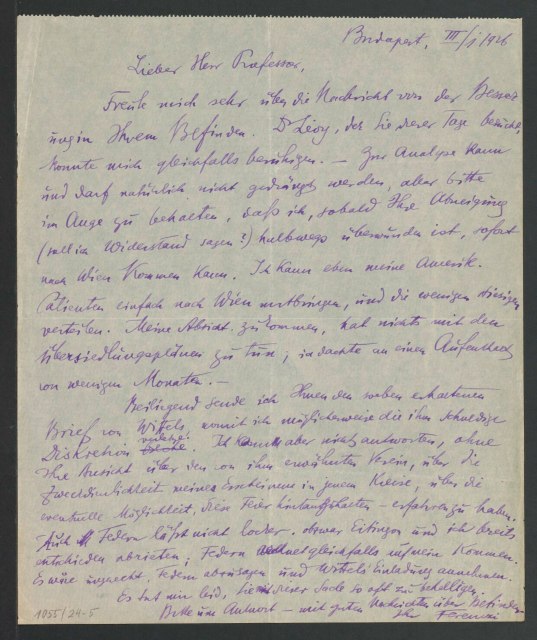 Budapest, III/1 1926
Lieber Herr Professor,
Freute mich sehr über die Nachricht von der Besser
ung in Ihrem Befinden. Dr Lévy, der Sie dieser Tage besuchte,
konnte mich gleichfalls beruhigen. — Zur Analyse kann
und darf natürlich nicht gedrängt werden, aber bitte
im Auge zu behalten, daß ich, sobald Ihre Abneigung
(soll ich Widerstand sagen?) halbwegs überwunden ist, sofort
nach Wien kommen kann. Ich kann eben meine Amerik.
Patienten einfach nach Wien mitbringen, und die wenigen hiesigen
verteilen. Meine Absicht zu kommen, hat nichts mit den
Übersiedlungsplänen zu tun; ich dachte an einen Aufenthalt
von wenigen Monaten. —
Beiliegend sende ich Ihnen den soeben erhaltenen
Brief von Wittels, womit ich möglicherweise die ihm schuldige
Diskretion verletze. Ich kann aber nicht antworten, ohne
Ihre Ansicht über den von ihm erwähnten Verein, über die
Zweckdienlichkeit meines Erscheinens in jenem Kreise, über die
eventuelle Möglichkeit, diese Feier hintanzuhalten — erfahren zu haben.
Auch Federn läßt nicht locker, obzwar Eitingon und ich bereits
entschieden abrieten; Federn rechnet gleichfalls auf mein Kommen.
Es wäre ungerecht, Federn abzusagen und Wittels Einladung annehmen.
Es tut mir leid, Sie mit dieser Sache so oft zu behelligen.
Bitte um Antwort — mit guten Nachrichten über Befinden
Ihr Ferenczi
1055/24-5